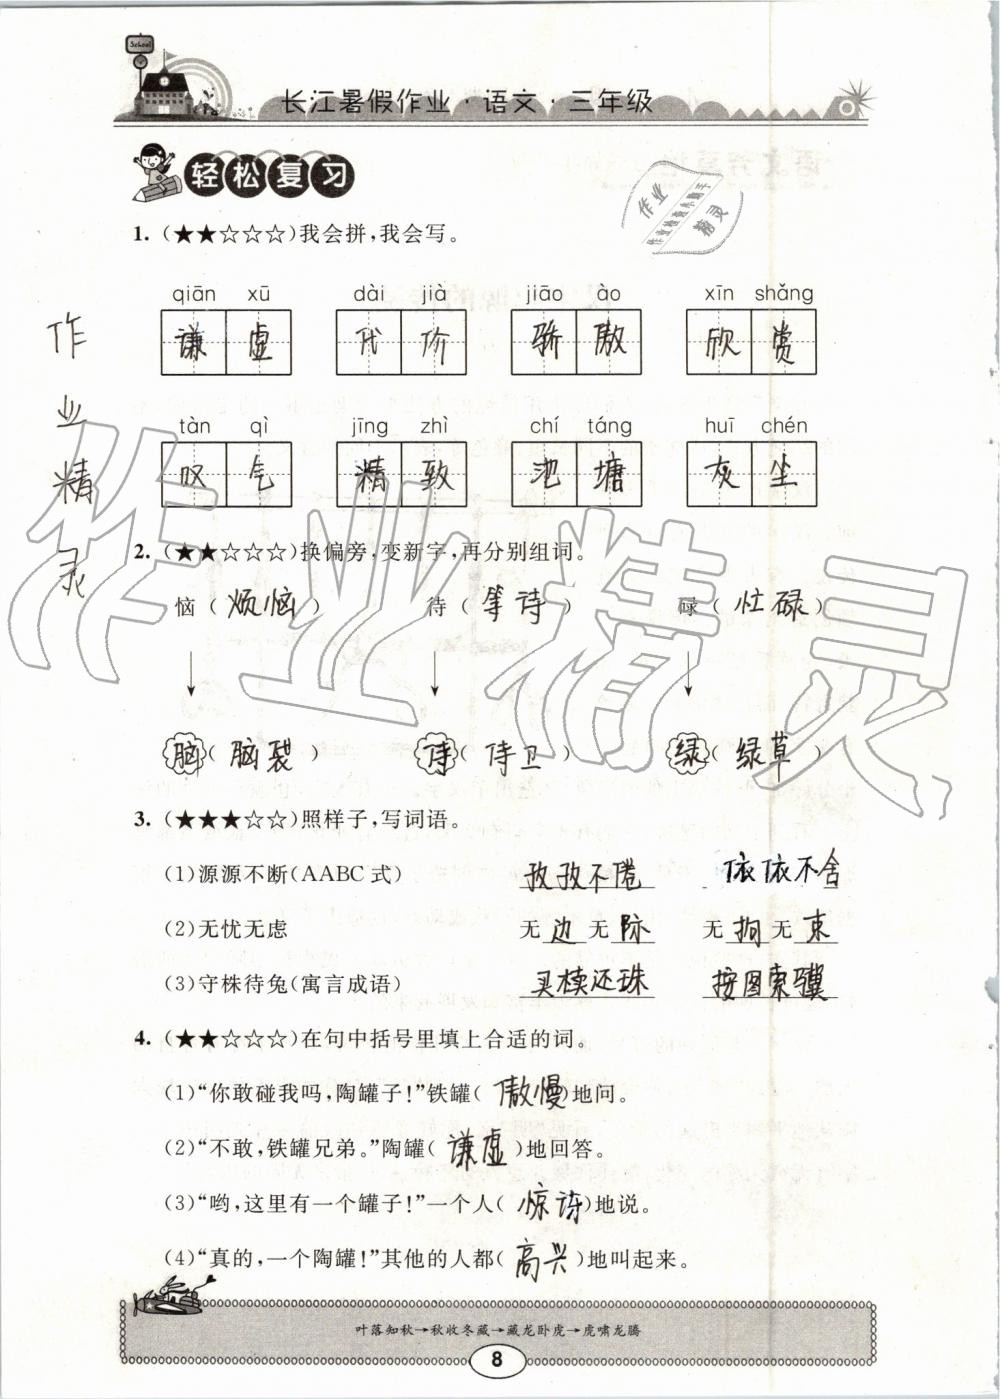 School
长江暑假作业·语文·三年级
轻松复习
作业
作业检查作业助手
精灵
1.(★★☆☆☆)我会拼,我会写。
qiān xū dài jià jiāo ào xīn shǎng
谦虚 代价 骄傲 欣赏
tàn qì jīng zhì chí táng huī chén
叹气 精致 池塘 灰尘
作业精灵
2.(★★☆☆☆)换偏旁,变新字,再分别组词。
恼(烦恼) 待(等待) 碌(忙碌)
脑(脑裂) 侍(侍卫) 绿(绿草)
3.(★★★☆☆)照样子,写词语。
(1)源源不断(AABC式) 孜孜不倦 依依不舍
(2)无忧无虑 无边无际 无拘无束
(3)守株待兔(寓言成语) 买椟还珠 按图索骥
4.(★★☆☆☆)在句中括号里填上合适的词。
(1)“你敢碰我吗,陶罐子!”铁罐(傲慢)地问。
(2)“不敢,铁罐兄弟。”陶罐(谦虚)地回答。
(3)“哟,这里有一个罐子!”一个人(惊讶)地说。
(4)“真的,一个陶罐!”其他的人都(高兴)地叫起来。
叶落知秋→秋收冬藏→藏龙卧虎→虎啸龙腾
8
作业精灵